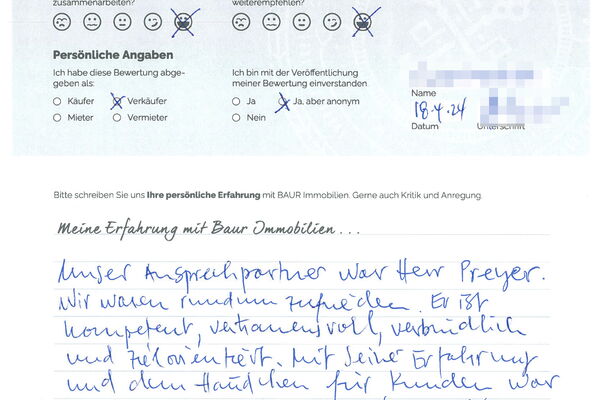 zusammenarbeiten? weiterempfehlen?
Persönliche Angaben
Ich habe diese Bewertung abge- Ich bin mit der Veröffentlichung
geben als: meiner Bewertung einverstanden.
Käufer Verkäufer Ja Ja, aber anonym
Mieter Vermieter Nein
Name
18.4.24
Datum Unterschrift
Bitte schreiben Sie uns Ihre persönliche Erfahrung mit BAUR Immobilien. Gerne auch Kritik und Anregung.
Meine Erfahrung mit Baur Immobilien...
Unser Ansprechpartner war Herr Preyer.
Wir waren rundum zufrieden. Er ist
kompetent, vertrauensvoll, verbindlich
und zielorientiert. Mit seine Erfahrung
und dem Händchen für Kunden war